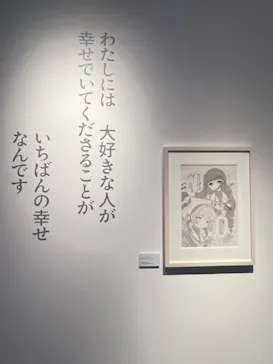 わたしには　大好きな人が
幸せでいてくださることが
いちばんの幸せ
なんです